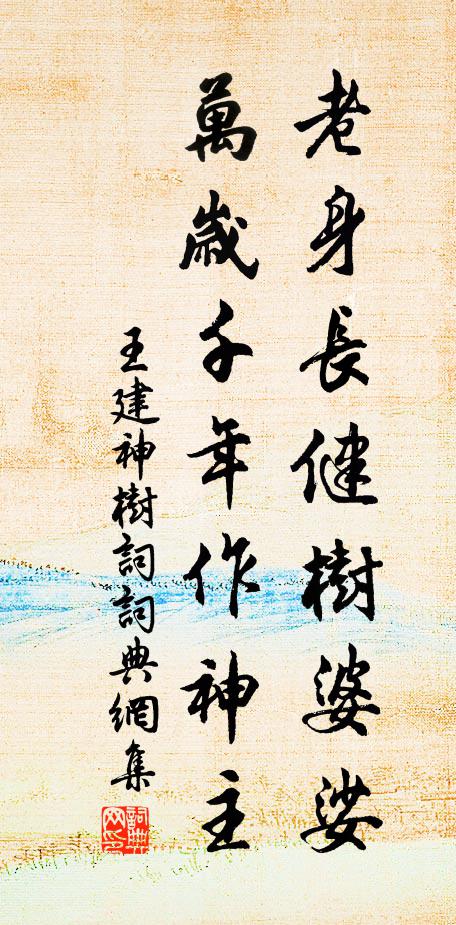 老身長健樹婆娑
萬歲千年作神主
王建神樹詞詞典網集
詞典網印